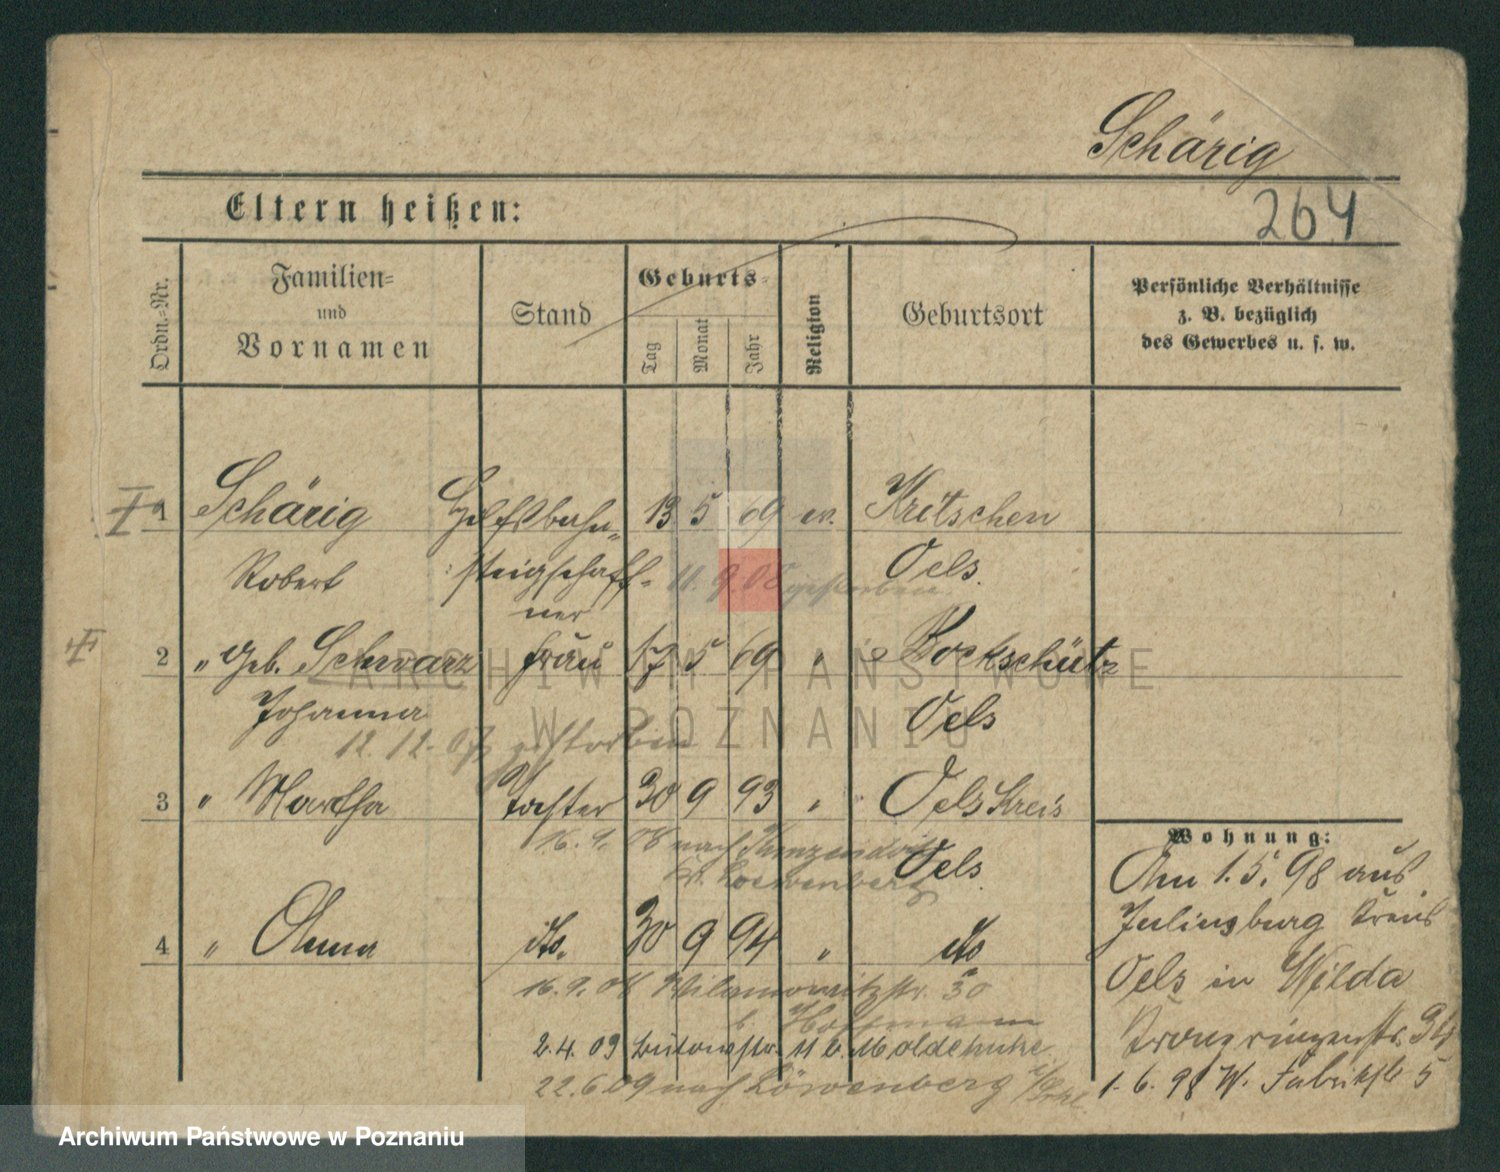 Schärig
264
Eltern heißen:
Ordn.-Nr.
Familien-
und
Vornamen
Stand
Geburts-
Tag
Monat
Jahr
Religion
Geburtsort
Persönliche Verhältnisse
z. B. bezüglich
des Gewerbes u. s. w.
1 Schärig Hilfsbahn- 13 5 69 ev. Kritschen
Robert steigschaff- 11. 9. 08 gestorben Oels.
ner
2 " geb. Schwarz Frau 17 5 69 " Bockschütz
Johanna Oels
12. 12. 07 gestorben
3 " Martha Tochter 30 9 93 " Oels Kreis
16. 9. 08 nach Kunzendorf Oels.
Kr. Loewenberg
4 " Anna do. 30 9 94 " do
16. 9. 08 Wilamowitzstr. 30
b. Hoffmann
2. 4. 09 11 b. Moldenhauer
22. 6. 09 nach Löwenberg
Wohnung:
Am 1. 5. 98 aus
Juliusburg Kreis
Oels in Wilda
Kronprinzenstr.
1. 6. 98 W. Fabrikstr 5
ARCHIWUM PAŃSTWOWE
W POZNANIU
Archiwum Państwowe w Poznaniu